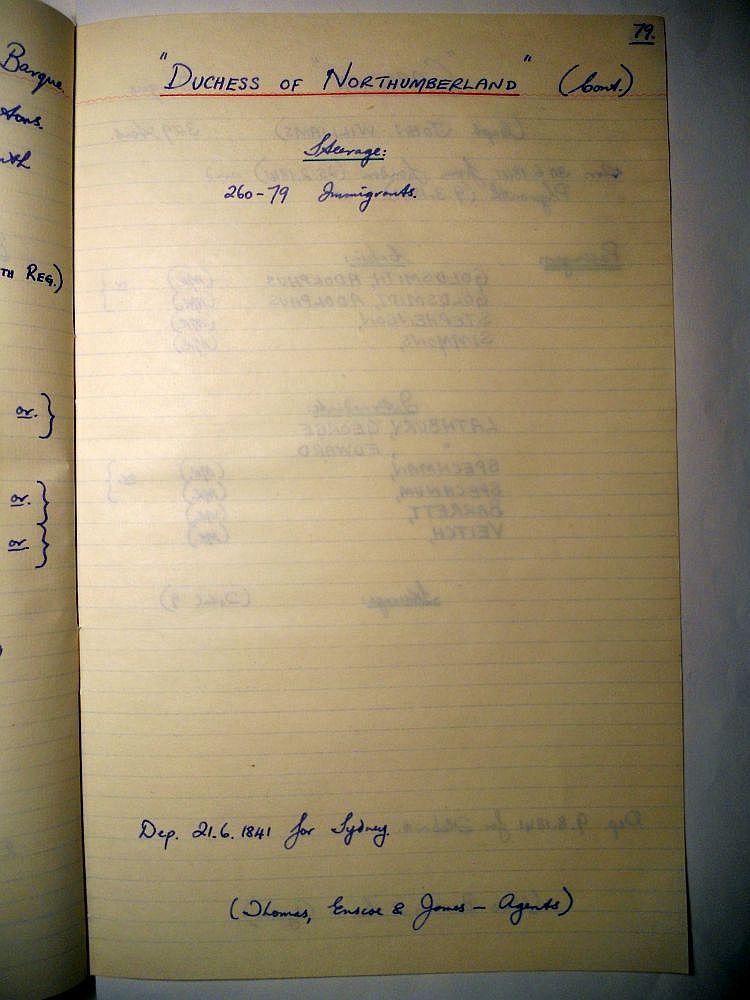 Barque.
tons.
TH REG.)
or. }
or. }
or }
79.
"DUCHESS OF NORTHUMBERLAND" (Cont.)
Steerage:
260-79 Immigrants.
Dep. 21.6.1841 for Sydney.
(Thomas, Enscoe & James - Agents)